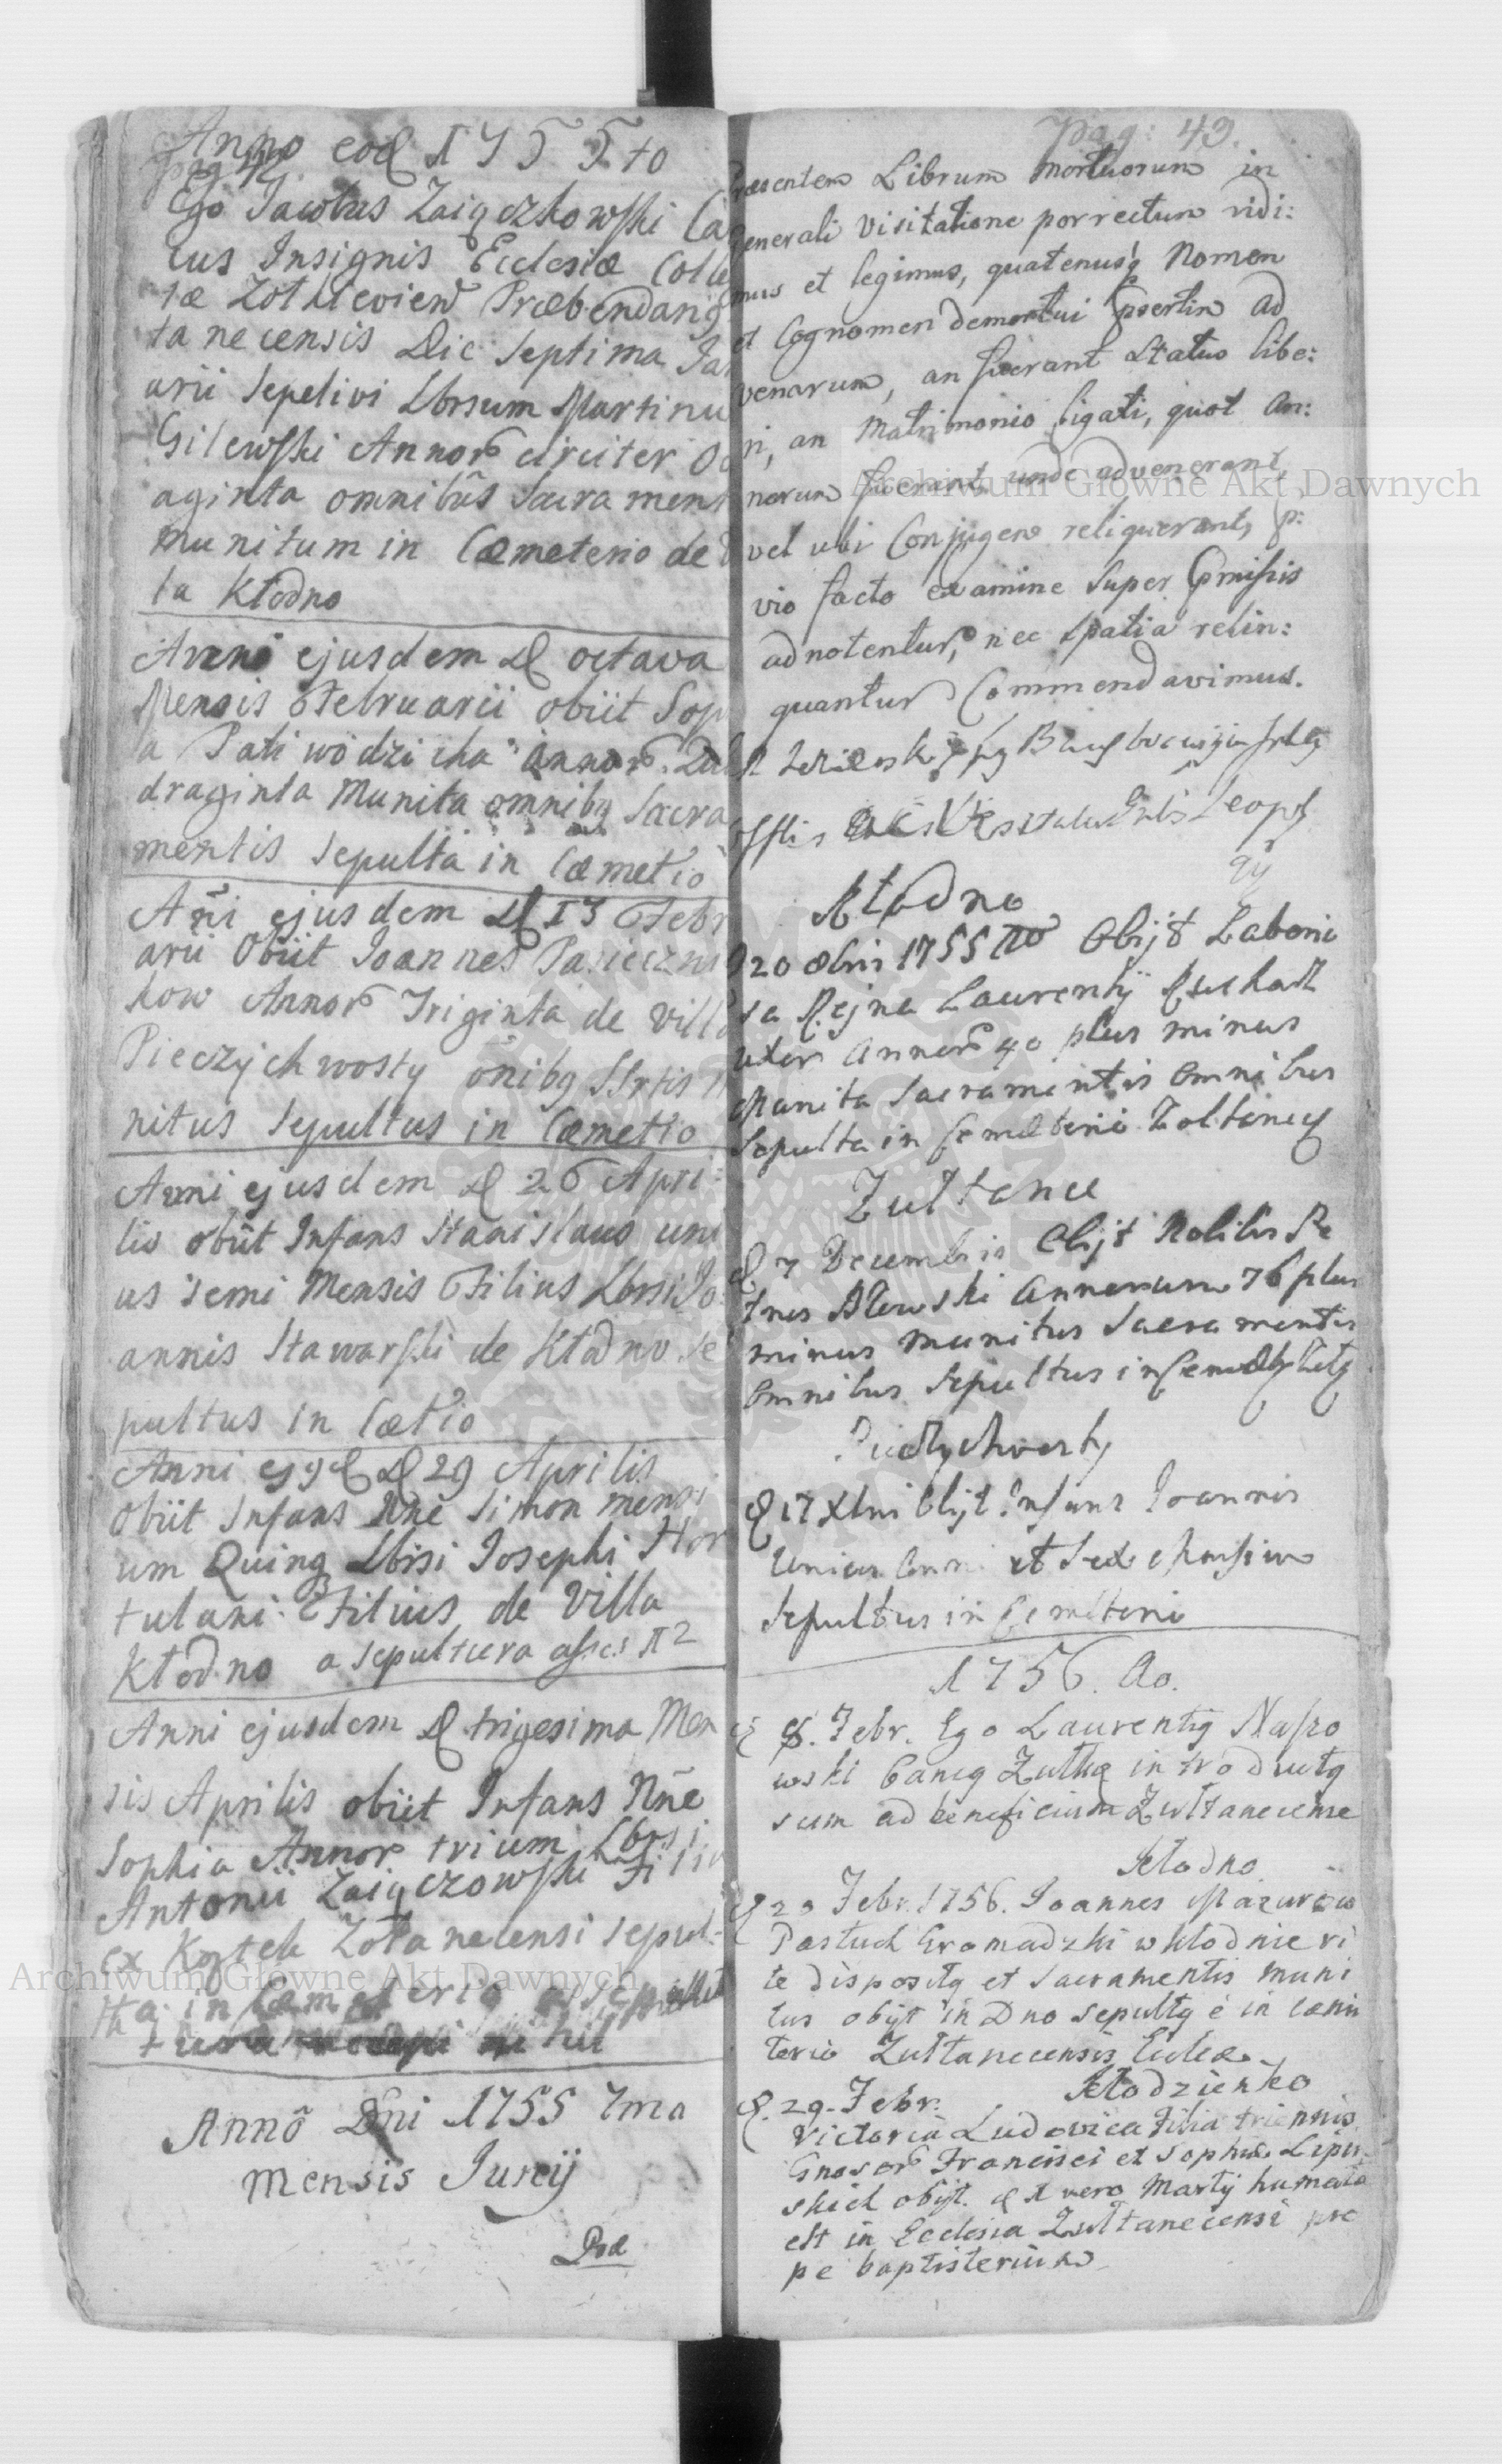 Anno eod 1755to
pag 42.
Ego Jacobus Zaiączkowski Ca
cus Insignis Ecclesiæ Colle
tæ Zolkievien Præbendariq
tanecensis Die Septima Ja
arii Sepelivi Lbrsum Martinu
Gilewski Annor circiter Oc
aginta omnibûs Sacrament
munitum in Cæmeterio de
la Kłodno
Anni ejusdem D octava
Mensis Februarii obiit Sop
a Pali wodzicha annor. Qua
draginta Munita omnibq Sacra
mentis Sepulta in Cæmetio
Añi ejusdem D 13 Febr
arii Obiit Joannes Pasieczni
kow Annor Triginta de Villa
Pieczychwosty õnibq SSrtis
nitus Sepultus in Cæmetio
Anni ejusdem D 26 Apri:
lis obiit Infans Stanislaus uni
us semi Mensis Filius Lbrsi Jo
annis Stawarski de Kłodno Se
pultus in Cætio
Anni ejqd D 29 Aprilis
Obiit Infans Nne Simon mensi
um Quinq Lbrsi Josephi Hor
tulani Filius de Villa
Kłodno a sepultura
Anni ejusdem D trigesima Men
sis Aprilis obiit Infans Nñe
Sophia Annor trium Lbrsi
Antonii Zaiączowski Filia
ex Zołtanecensi sepul-
ta in Cæmeterio
nihil
Annô Dni 1755 7ma
mensis Junij
Præ
Pag: 43.
Præsentem Librum Mortuorum in
generali Visitatione porrectum vidi:
mus et legimus, quatenusq Nomen
et Cognomen demortui psertim ad
venarum, an fuerant Status libe:
ri, an Matrimonio ligati, quot an:
norum fuerint unde advenerant,
vel ubi Conjugem reliquerant, p:
vio facto examine Super pmissis
adnotentur, nec spatia relin:
quantur Commendavimus.
Kłodno
D 20 1755 Obijt Laborio
sa Rejna Laurentij
uxor Annor 40 plus minus
Munita Sacramentis Omnibus
Sepulta in Cemæterio
Zultance
D 7 Decembris Obijt Nobilis Pe
trus Annorum 76 plus
minus munitus Sacramentis
Omnibus Sepultus in
Pieczychwosty
D 17 Xbris Obijt Infans Joannis
Unius Anni et Sex Mensium
Sepultus in Cemæterio
1756. Ao.
8. Febr. Ego Laurentiq
wski Caniq introductq
sum ad beneficium Zułtanecense
Kłodno
D 20 Febr. 1756. Joannes Mazurow
Pastuch Gromadzki w kłodnie ri
te dispositq et Sacramentis muni
tus obijt in Dno sepultq ê in cæmi
terio Zułtanecensis Eccleæ
Kłodzienko
D. 29. Febr.
Victoria Ludovica Filia triennis
Gnosor Francisci et Sophiæ Lipin
skich obijt. d 1 vero Martij humata
est in Ecclesia Zułtanecensi pro
pe baptisterium
Archiwum Główne Akt Dawnych
Archiwum Główne Akt Dawnych